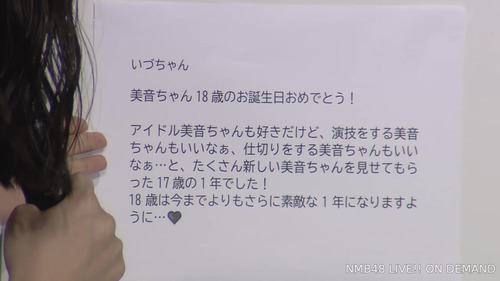 いづちゃん
美音ちゃん18歳のお誕生日おめでとう！
アイドル美音ちゃんも好きだけど、演技をする美音
ちゃんもいいなぁ、仕切りをする美音ちゃんもいい
なぁ…と、たくさん新しい美音ちゃんを見せてもら
った17歳の1年でした！
18歳は今までよりもさらに素敵な1年になりますよ
うに…🖤
NMB48 LIVE!! ON DEMAND